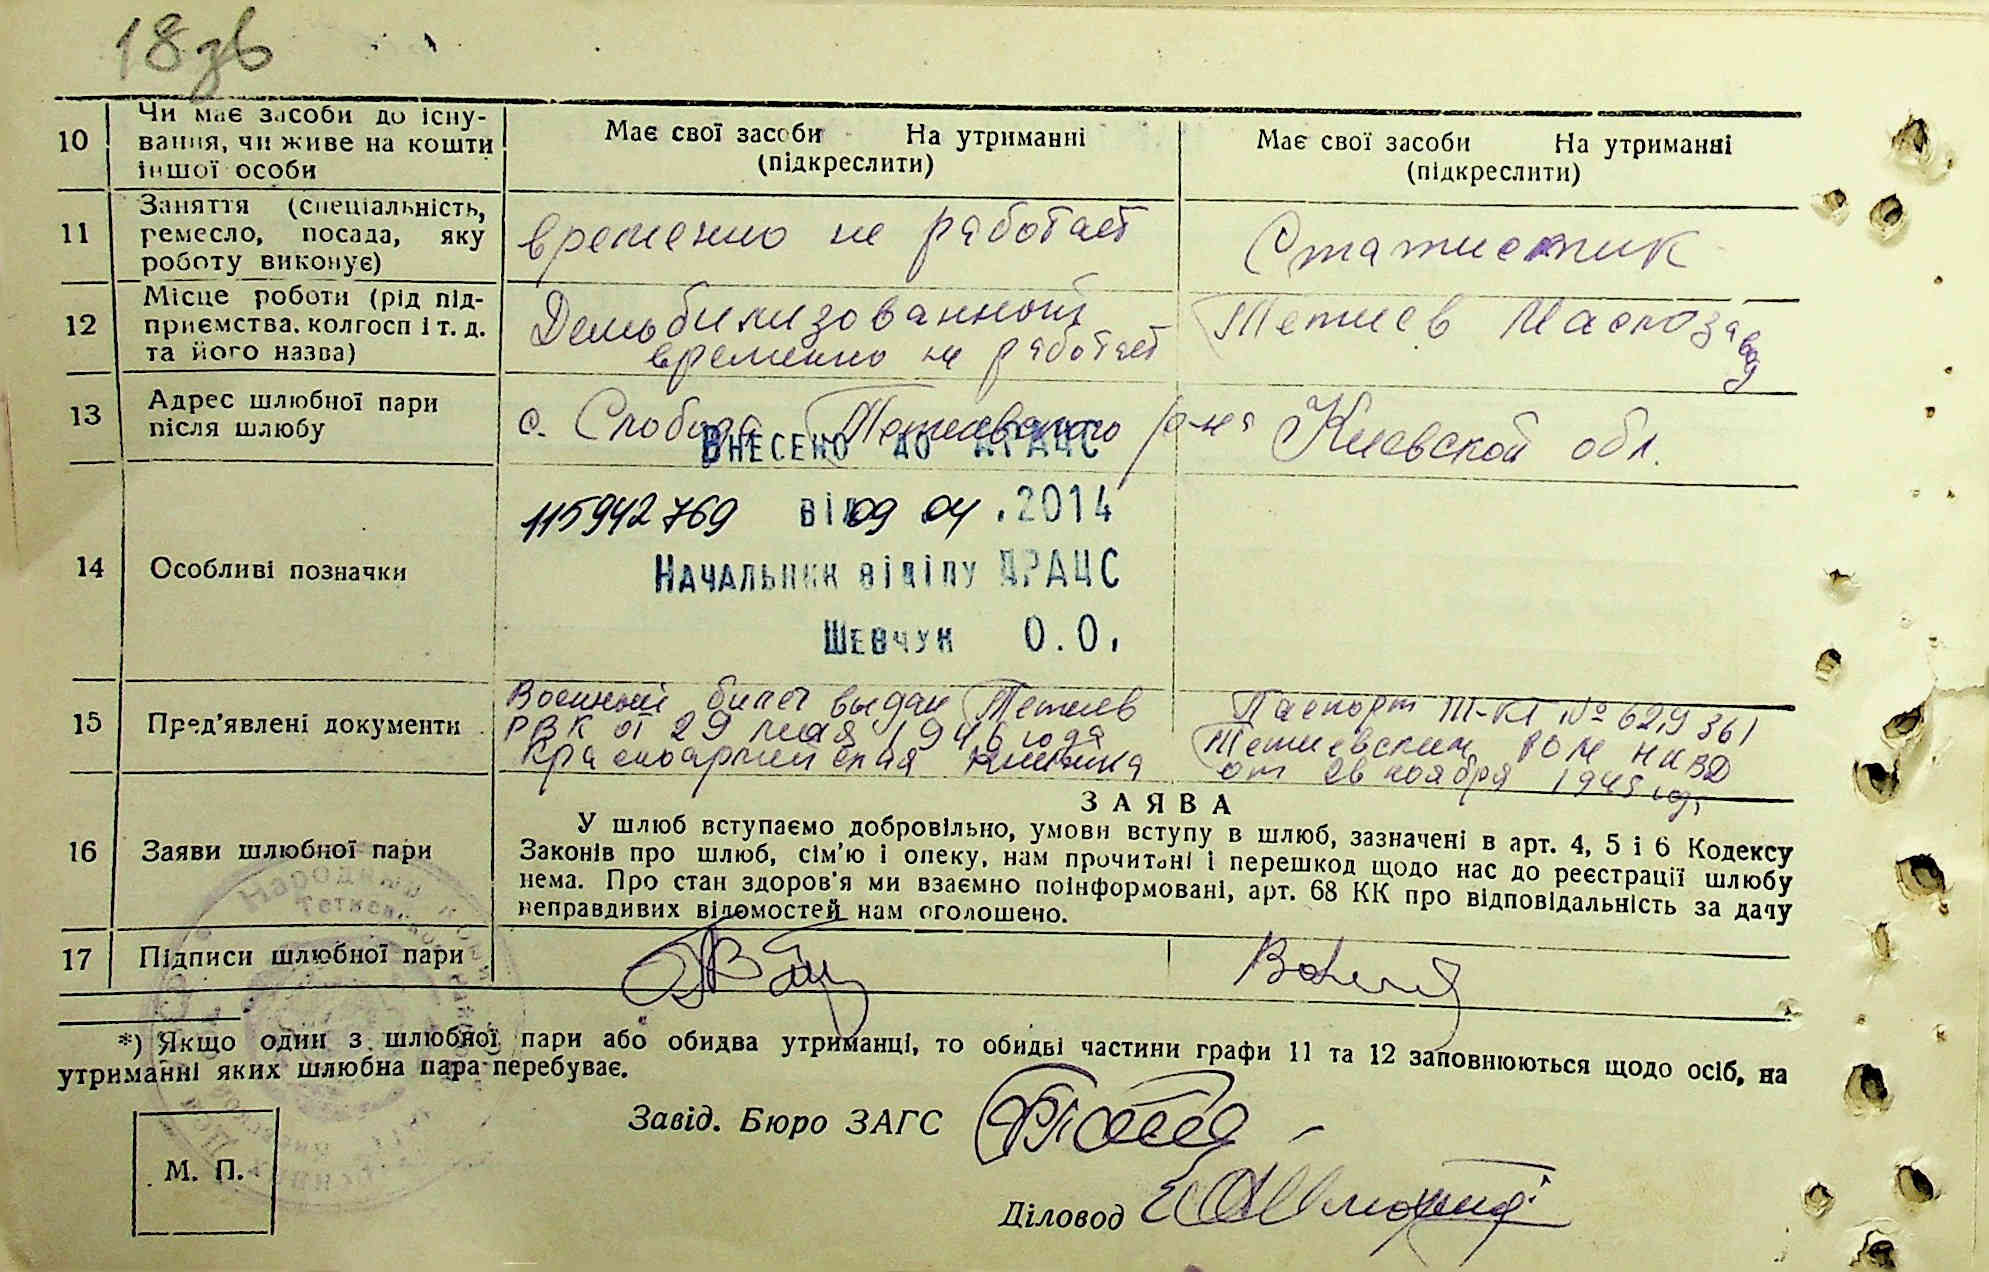 18 зв
10 Чи має засоби до існу-
вання, чи живе на кошти
іншої особи
Має свої засоби На утриманні
(підкреслити)
Має свої засоби На утриманні
(підкреслити)
11 Заняття (спеціальність,
ремесло, посада, яку
роботу виконує)
временно не работает
Статистик
12 Місце роботи (рід під-
приємства, колгосп і т. д.
та його назва)
Демобилизованный
временно не работает
Тетиев Маслозавод
13 Адрес шлюбної пари
після шлюбу
с. Слобода Тетиевского р-на Киевской обл.
Внесено до ДРАЦС
115942769 від 09 04 .2014
Начальник відділу ДРАЦС
Шевчук О.О.
14 Особливі позначки
15 Пред'явлені документи
Военный билет выдан Тетиев
РВК от 29 мая 1946 года
Красноармейская книжка
Паспорт III-КТ № 629361
Тетиевским РОМ НКВД
от 26 ноября 1945 года
16 Заяви шлюбної пари
ЗАЯВА
У шлюб вступаємо добровільно, умови вступу в шлюб, зазначені в арт. 4, 5 і 6 Кодексу
Законів про шлюб, сім'ю і опеку, нам прочитані і перешкод щодо нас до реєстрації шлюбу
нема. Про стан здоров'я ми взаємно поінформовані, арт. 68 КК про відповідальність за дачу
неправдивих відомостей нам оголошено.
17 Підписи шлюбної пари
*) Якщо один з шлюбної пари або обидва утриманці, то обидві частини графи 11 та 12 заповнюються щодо осіб, на
утриманні яких шлюбна пара перебуває.
Завід. Бюро ЗАГС
М. П.
Діловод